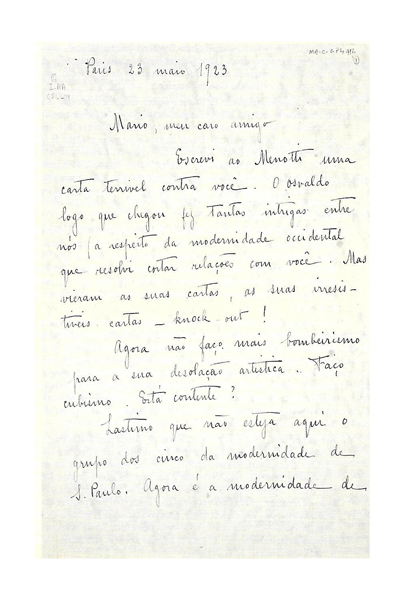 MA-C-CPL
①
Paris 23 maio 1923
Mario, meu caro amigo
Escrevi ao Menotti uma
carta terrivel contra você. O Osvaldo
logo que chegou fez tantas intrigas entre
nós (a respeito da modernidade occidental
que resolvi cortar relações com você. Mas
vieram as suas cartas, as suas irresis-
tiveis cartas – knock out!
Agora não faço mais bombeirismo
para a sua desolação artistica. Faço
cubismo. Está contente?
Lastimo que não esteja aqui o
grupo dos cinco da modernidade de
S. Paulo. Agora é a modernidade de